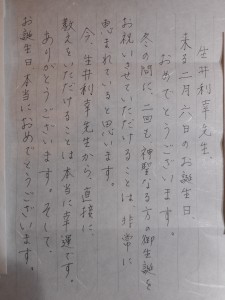 生井利幸先生、
来る二月六日のお誕生日
おめでとうございます。
冬の間に、二回も神聖なる方の御生誕を
お祝いさせていただけることは非常に
恵まれていると思います。
今、生井利幸先生から、直接に、
教えをいただけることは本当に幸運です。
ありがとうございます。そして、
お誕生日本当におめでとうございます。